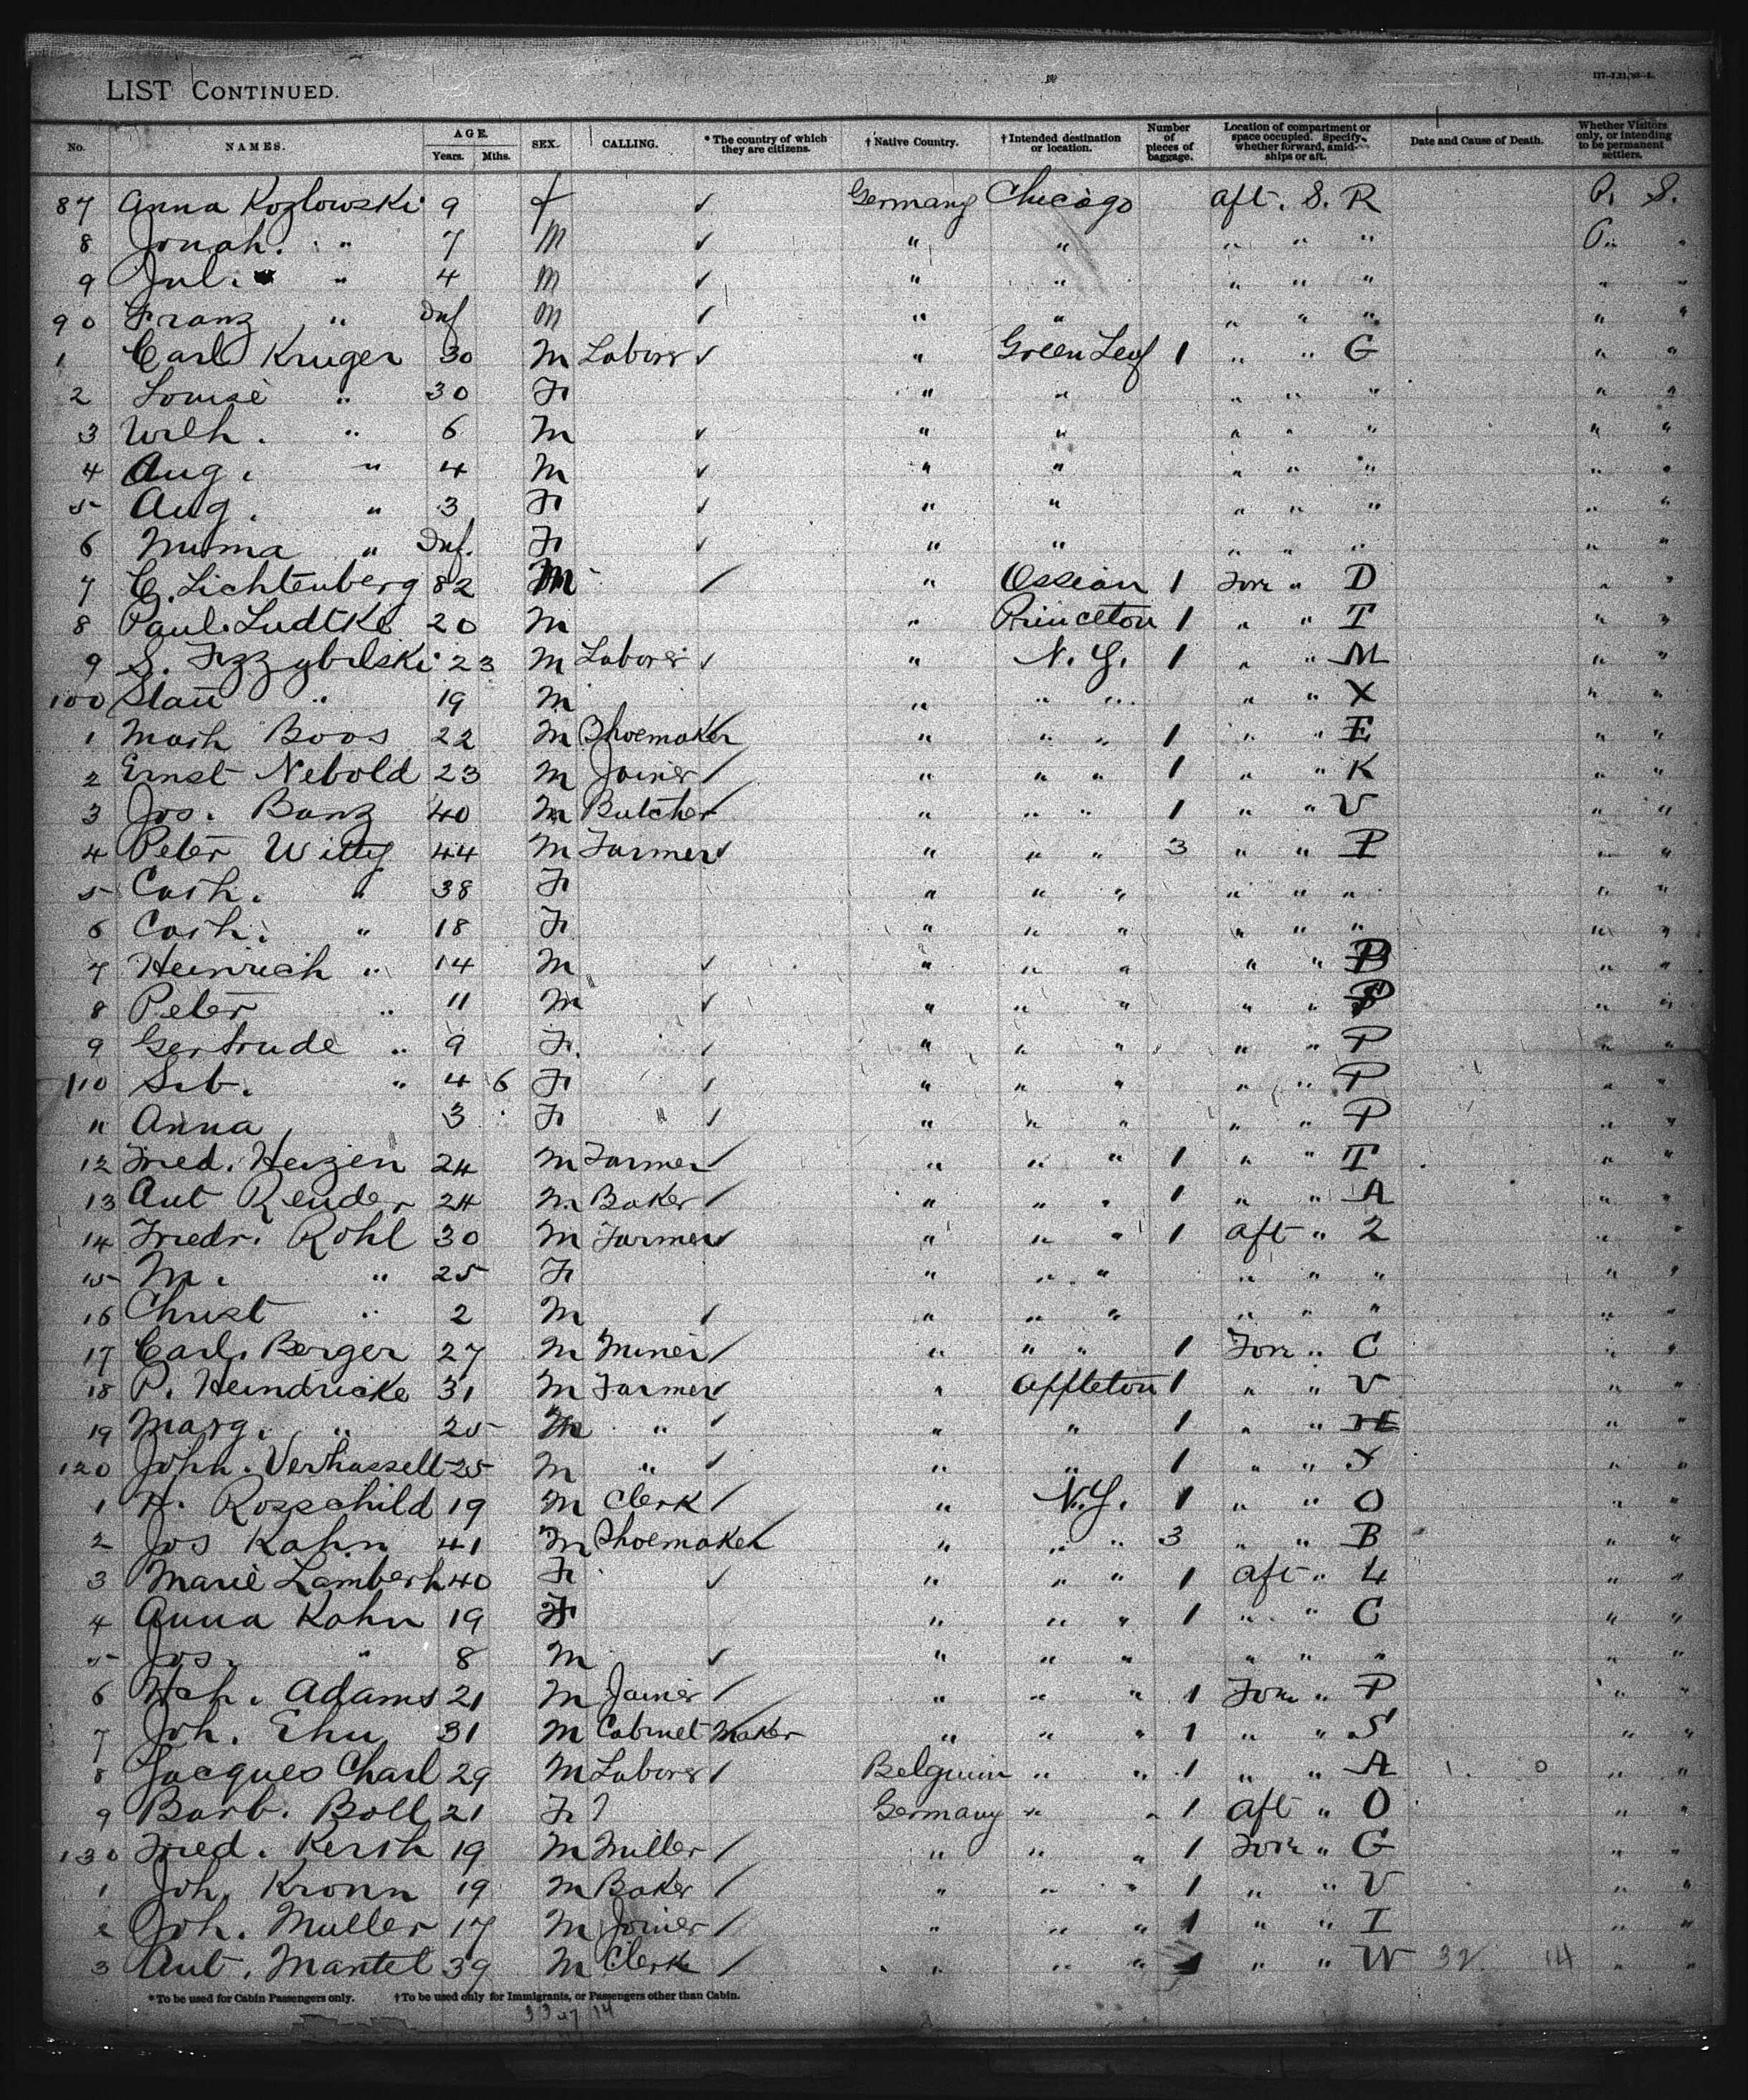 LIST CONTINUED.
No. NAMES. AGE. Years. Mths. SEX. CALLING. * The country of which they are citizens. † Native Country. † Intended destination or location. Number of pieces of baggage. Location of compartment or space occupied. Specify whether forward, amidships or aft. Date and Cause of Death. Whether Visitors only, or intending to be permanent settlers.
87 Anna Kozlowski 9 f ✓ Germany Chicago aft. S. R P. S.
8 Jonah. " 7 M ✓ " " " " " P. "
9 Jul. " 4 M ✓ " " " " " " "
90 Franz " Inf M ✓ " " " " " " "
1 Carl Kruger 30 M Laborer ✓ " Green Leaf 1 " " G " "
2 Louise " 30 F " " " " " " "
3 Wilh. " 6 M ✓ " " " " " " "
4 Aug. " 4 M ✓ " " " " " " "
5 Aug. " 3 F ✓ " " " " " " "
6 " Inf. F ✓ " " " " " " "
7 C. Lichtenberg 82 M ✓ " Ossian 1 Forr " D " "
8 Paul Ludtke 20 M " Princeton 1 " " T " "
9 S. 23 M Laborer ✓ " N. Y. 1 " " M " "
100 " 19 M " " " " " X " "
1 Math Boos 22 M Shoemaker ✓ " " " 1 " " E " "
2 Ernst Nebold 23 M Joiner ✓ " " " 1 " " K " "
3 Jos. Banz 40 M Butcher ✓ " " " 1 " " V " "
4 Peter Witty 44 M Farmer ✓ " " " 3 " " P " "
5 Cath. " 38 F " " " " " " " "
6 Cath. " 18 F " " " " " " " "
7 Heinrich " 14 M ✓ " " " " " P " "
8 Peter " 11 M ✓ " " " " " P " "
9 Gertrude " 9 F. ✓ " " " " " P " "
110 Sib. " 4 6 F ✓ " " " " " P " "
11 Anna 3 F " ✓ " " " " " P " "
12 Fried. Heizen 24 M Farmer ✓ " " " 1 " " T " "
13 Ant Render 24 M Baker ✓ " " " 1 " " A " "
14 Friedr. Rohl 30 M Farmer ✓ " " " 1 aft " 2 " "
15 M. " 25 F " " " " " " " "
16 Christ " 2 M ✓ " " " " " " " "
17 Carl Berger 27 M Miner ✓ " " " 1 Forr " C " "
18 P. Heindricke 31 M Farmer ✓ " Appleton 1 " " V " "
19 Marg. " 25 M " ✓ " " 1 " " " "
120 John. Verhasselt 25 M " ✓ " " 1 " " X " "
1 Rosschild 19 M Clerk ✓ " N.Y. 1 " " O " "
2 Jos Kahn 41 M Shoemaker ✓ " " " 3 " " B " "
3 Marie Lamberh 40 F ✓ " " " 1 aft " 4 " "
4 Anna Kahn 19 F " " " 1 " " C " "
5 Jos. " 8 M ✓ " " " " " " " "
6 Hch. Adams 21 M Joiner ✓ " " " 1 Forr " P " "
7 Joh. Ehu 31 M Cabinet Maker " " " 1 " " S " "
8 Jacques Charl 29 M Laborer ✓ Belguim " " 1 " " A " "
9 Barb. Boll 21 F ? Germany " " 1 aft " O " "
130 Fried. Kerth 19 M Miller ✓ " " " 1 Forr " G " "
1 Joh. Kronn 19 M Baker ✓ " " " 1 " " V " "
2 Joh. Muller 17 M Joiner ✓ " " " 1 " " I " "
3 Ant. Mantel 39 M Clerk ✓ " " " 1 " " W 32. 14 " "
* To be used for Cabin Passengers only. † To be used only for Immigrants, or Passengers other than Cabin.